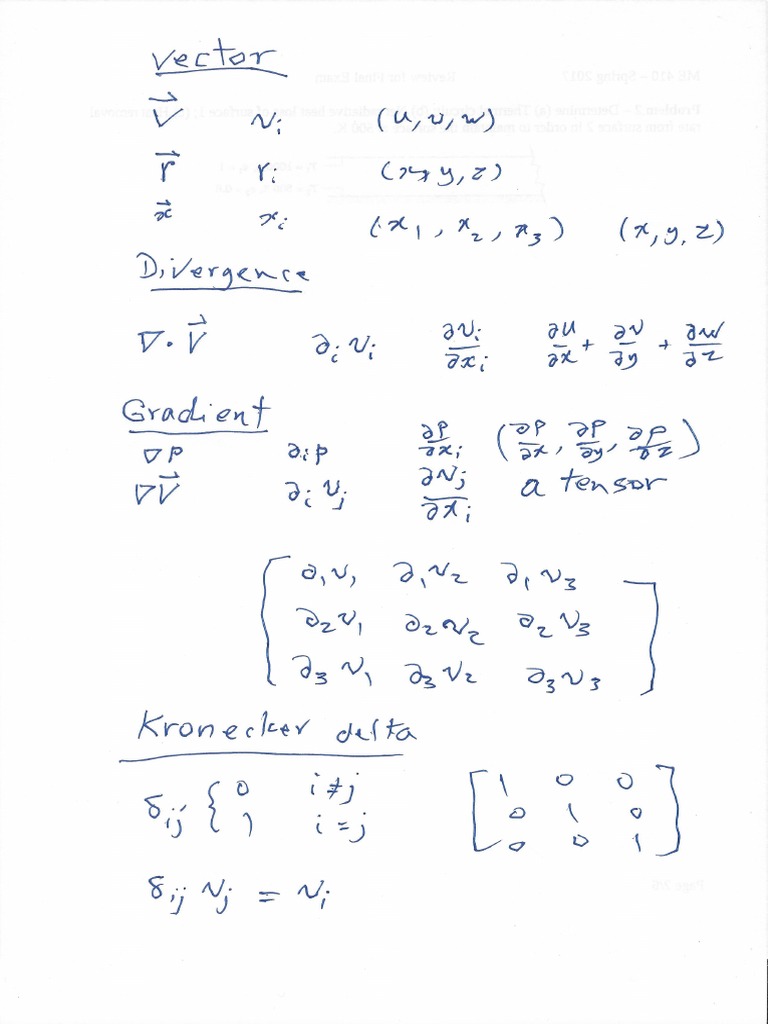 vector
V⃗ vᵢ (u, v, w)
r⃗ rᵢ (x, y, z)
x⃗ xᵢ (x₁, x₂, x₃) (x, y, z)
Divergence
∇·V⃗ ∂ᵢvᵢ ∂vᵢ/∂xᵢ ∂u/∂x + ∂v/∂y + ∂w/∂z
Gradient
∇p ∂ᵢp ∂p/∂xᵢ (∂p/∂x, ∂p/∂y, ∂p/∂z)
∇V⃗ ∂ᵢvⱼ ∂vⱼ/∂xᵢ a tensor
[ ∂₁v₁ ∂₁v₂ ∂₁v₃
∂₂v₁ ∂₂v₂ ∂₂v₃
∂₃v₁ ∂₃v₂ ∂₃v₃ ]
Kronecker delta
δᵢⱼ { 0 i ≠ j [ 1 0 0
1 i = j 0 1 0
0 0 1 ]
δᵢⱼ vⱼ = vᵢ